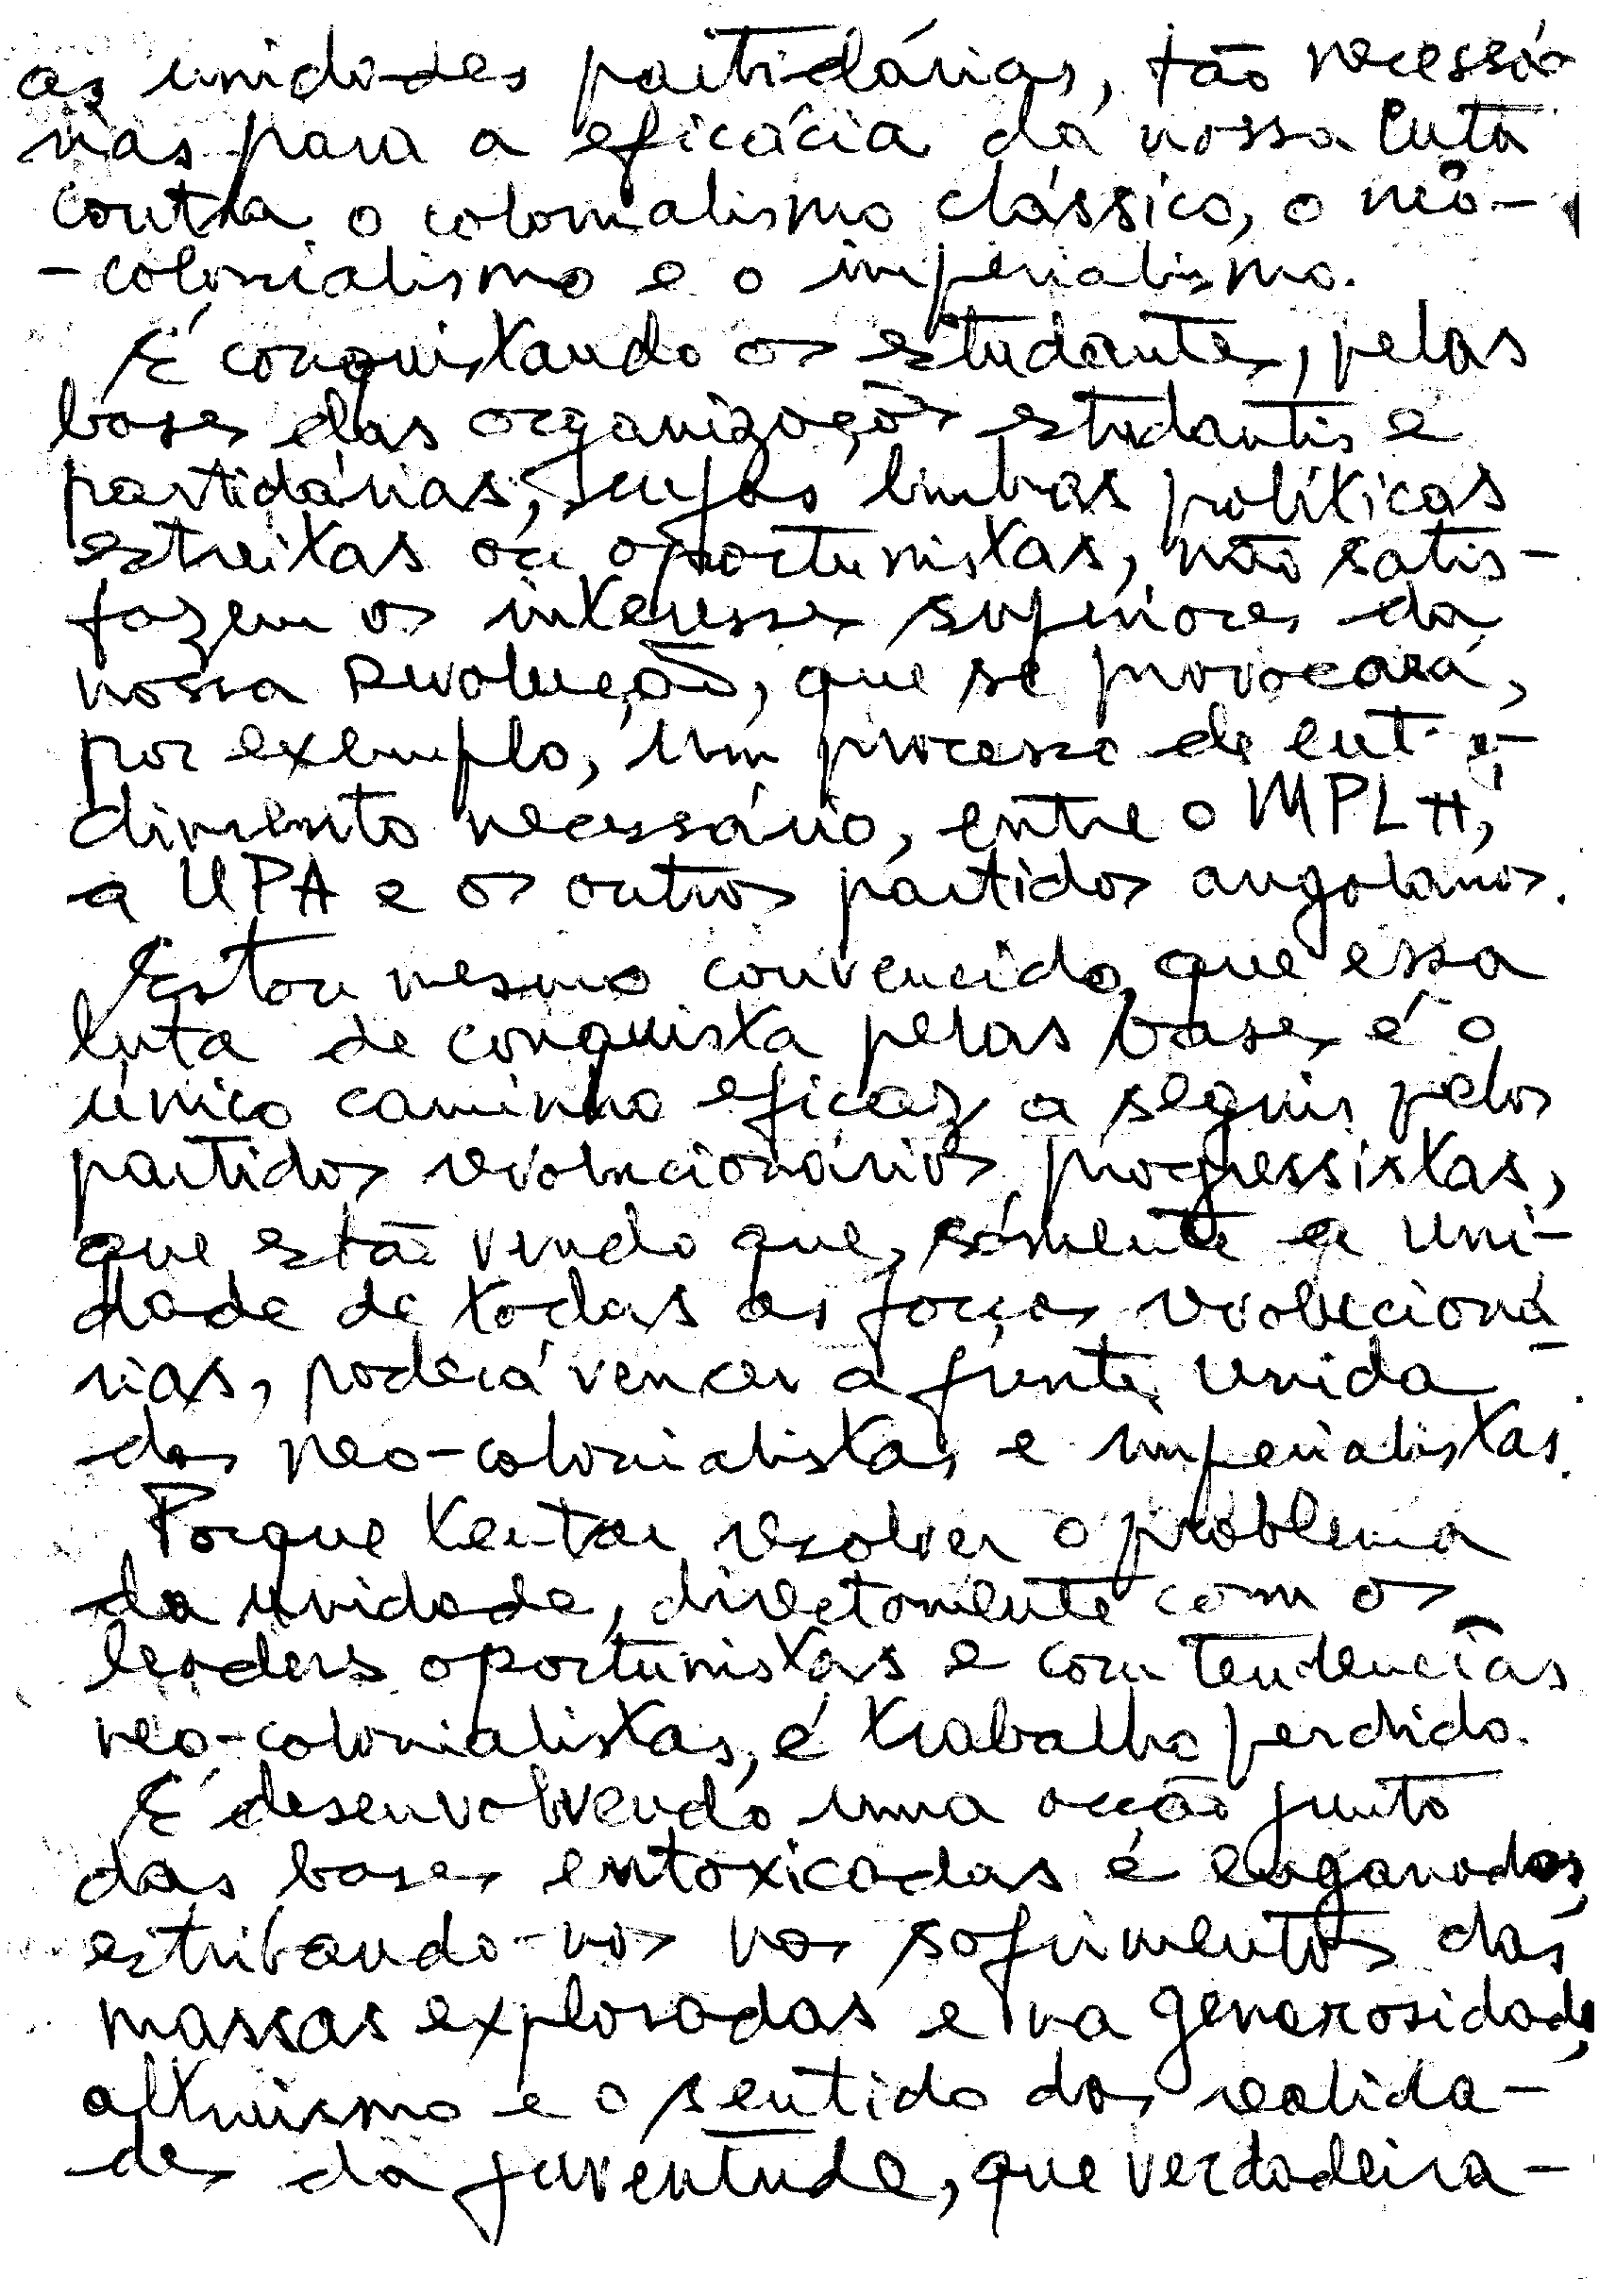 as unidades partidárias, tão necessá-
rias para a eficácia da nossa luta
contra o colonialismo clássico, o neo-
-colonialismo e o imperialismo.
É conquistando os estudantes, pelas
bases das organizações estudantis e
partidárias, cujas linhas políticas
estreitas ou oportunistas, não satis-
fazem os interesses superiores da
nossa Revolução, que se provocará,
por exemplo, um processo de ent e-
dimento necessário, entre o MPLA,
a UPA e os outros partidos angolanos.
Estou mesmo convencido, que essa
luta de conquista pelas bases, é o
único caminho eficaz a seguir pelos
partidos revolucionários progressistas,
que estão vendo que, sómente a uni-
dade de todas as forças revolucioná-
rias, poderá vencer a frente unida
dos neo-colonialistas e imperialistas.
Porque tentar resolver o problema
da unidade, directamente com os
leaders oportunistas e com tendencias
neo-colonialistas, é trabalho perdido.
É desenvolvendo uma acção junto
das bases entoxicadas é enganadas,
estribando-nos nos sofrimentos das
massas exploradas e na generosidade,
altruismo e o sentido das realida-
des da juventude, que verdadeira-